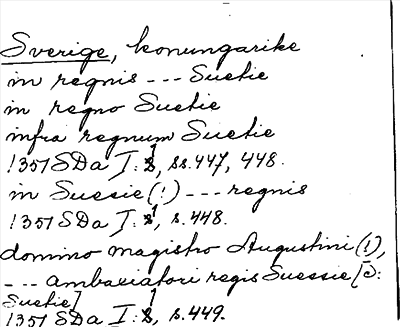 Sverige, konungarike
in regnis --- Suetie
in regno Suetie
infra regnum Suetie
1351 SDa I:1, ss. 447, 448.
in Suesie (!) --- regnis
1351 SDa I:1, s. 448.
domino magistro Augustini (!),
--- ambaxiatori regis Suessie [ɔ:
Suetie]
1351 SDa I:1, s. 449.